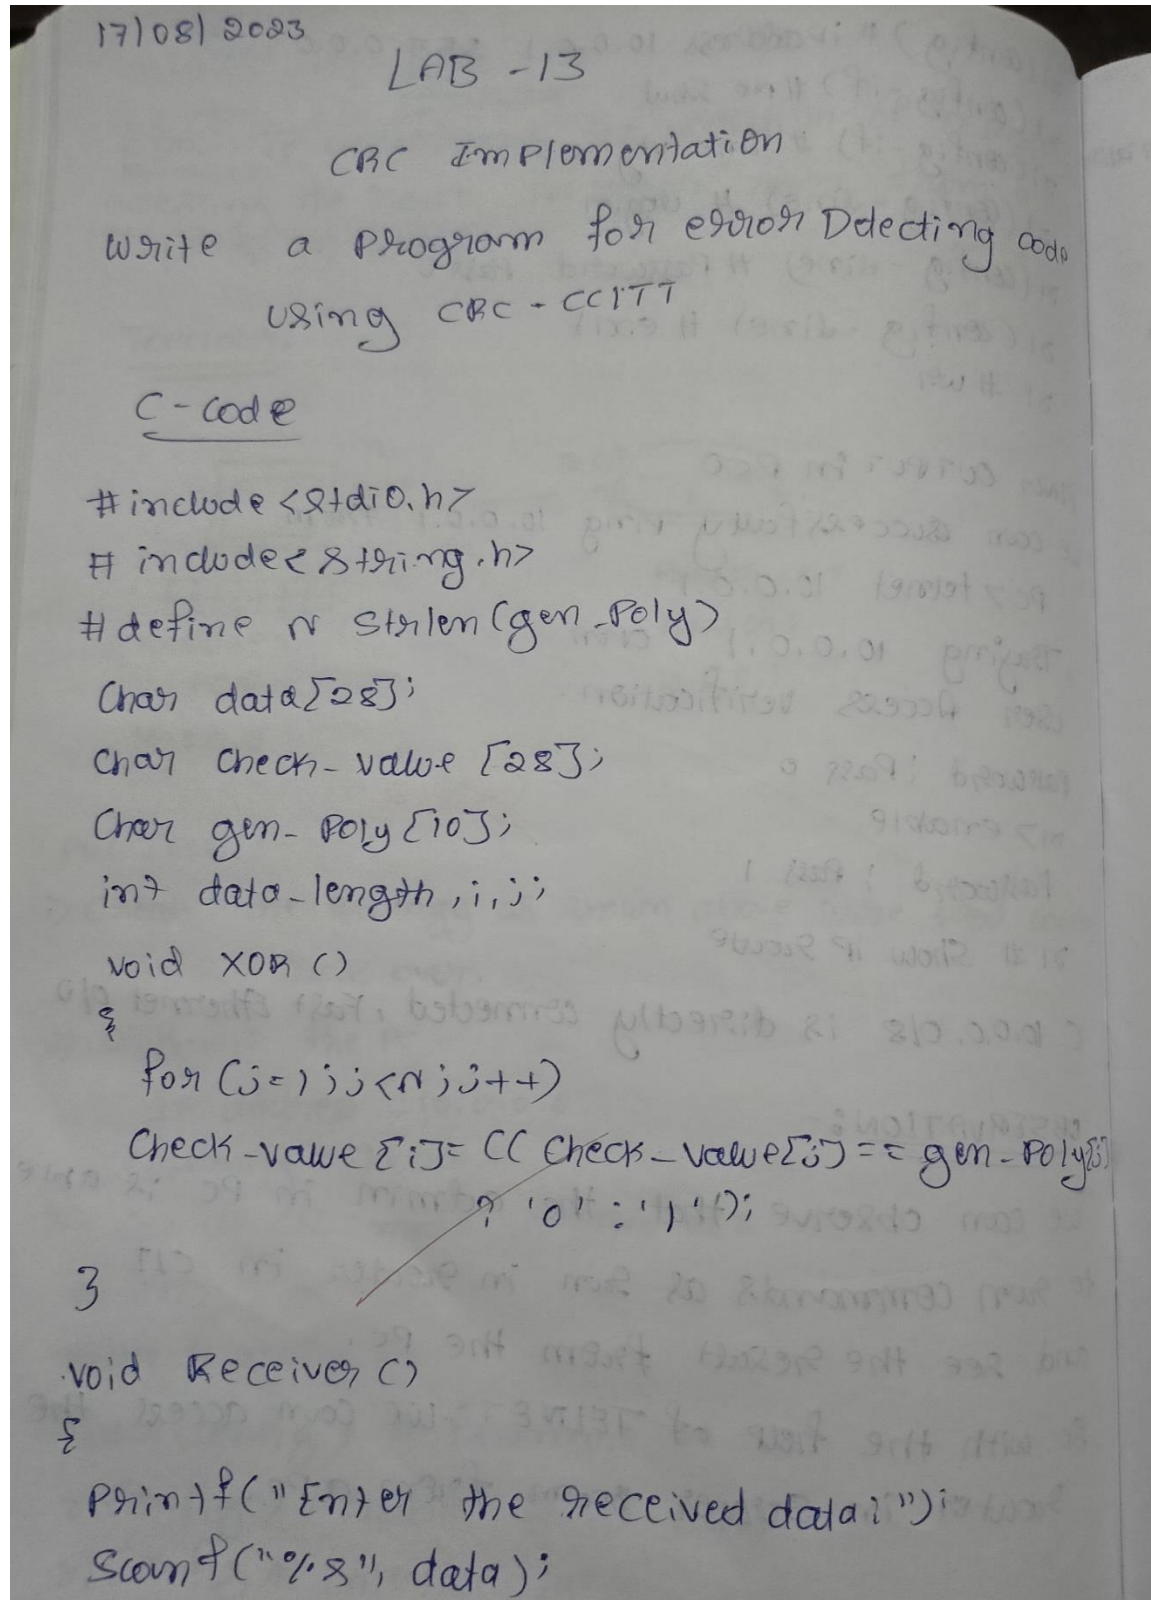 17/08/2023
LAB - 13
CRC Implementation
write a program for error Detecting code
using CRC - CCITT
C - code
#include <stdio.h>
# include < string.h>
#define N strlen(gen_poly)
Char data[28];
Char Check_value [28];
Char gen_poly [10];
int data_length, i, j;
void XOR ()
{
for (j=1; j<N; j++)
Check_value [j]= (( Check_value[j] == gen_poly[j]
? '0' : '1');
}
void Receiver ()
{
Printf("Enter the received data:");
Scanf("%s", data);